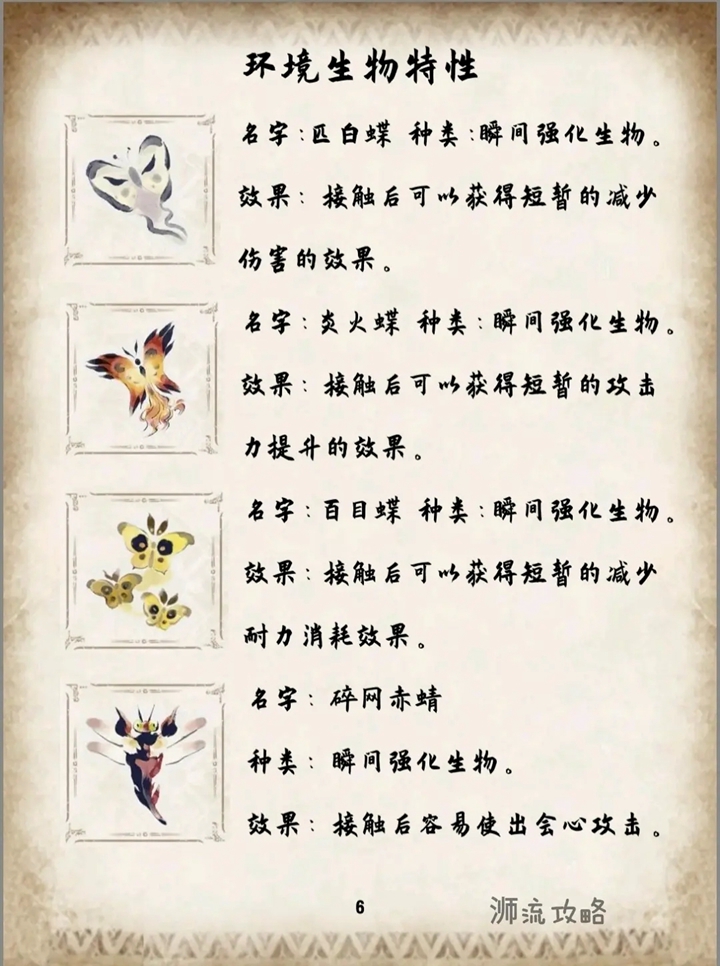 环境生物特性
名字：匹白蝶 种类：瞬间强化生物。
效果：接触后可以获得短暂的减少
伤害的效果。
名字：炎火蝶 种类：瞬间强化生物。
效果：接触后可以获得短暂的攻击
力提升的效果。
名字：百目蝶 种类：瞬间强化生物。
效果：接触后可以获得短暂的减少
耐力消耗效果。
名字：碎网赤蜻
种类：瞬间强化生物。
效果：接触后容易使出会心攻击。
6
浉流攻略